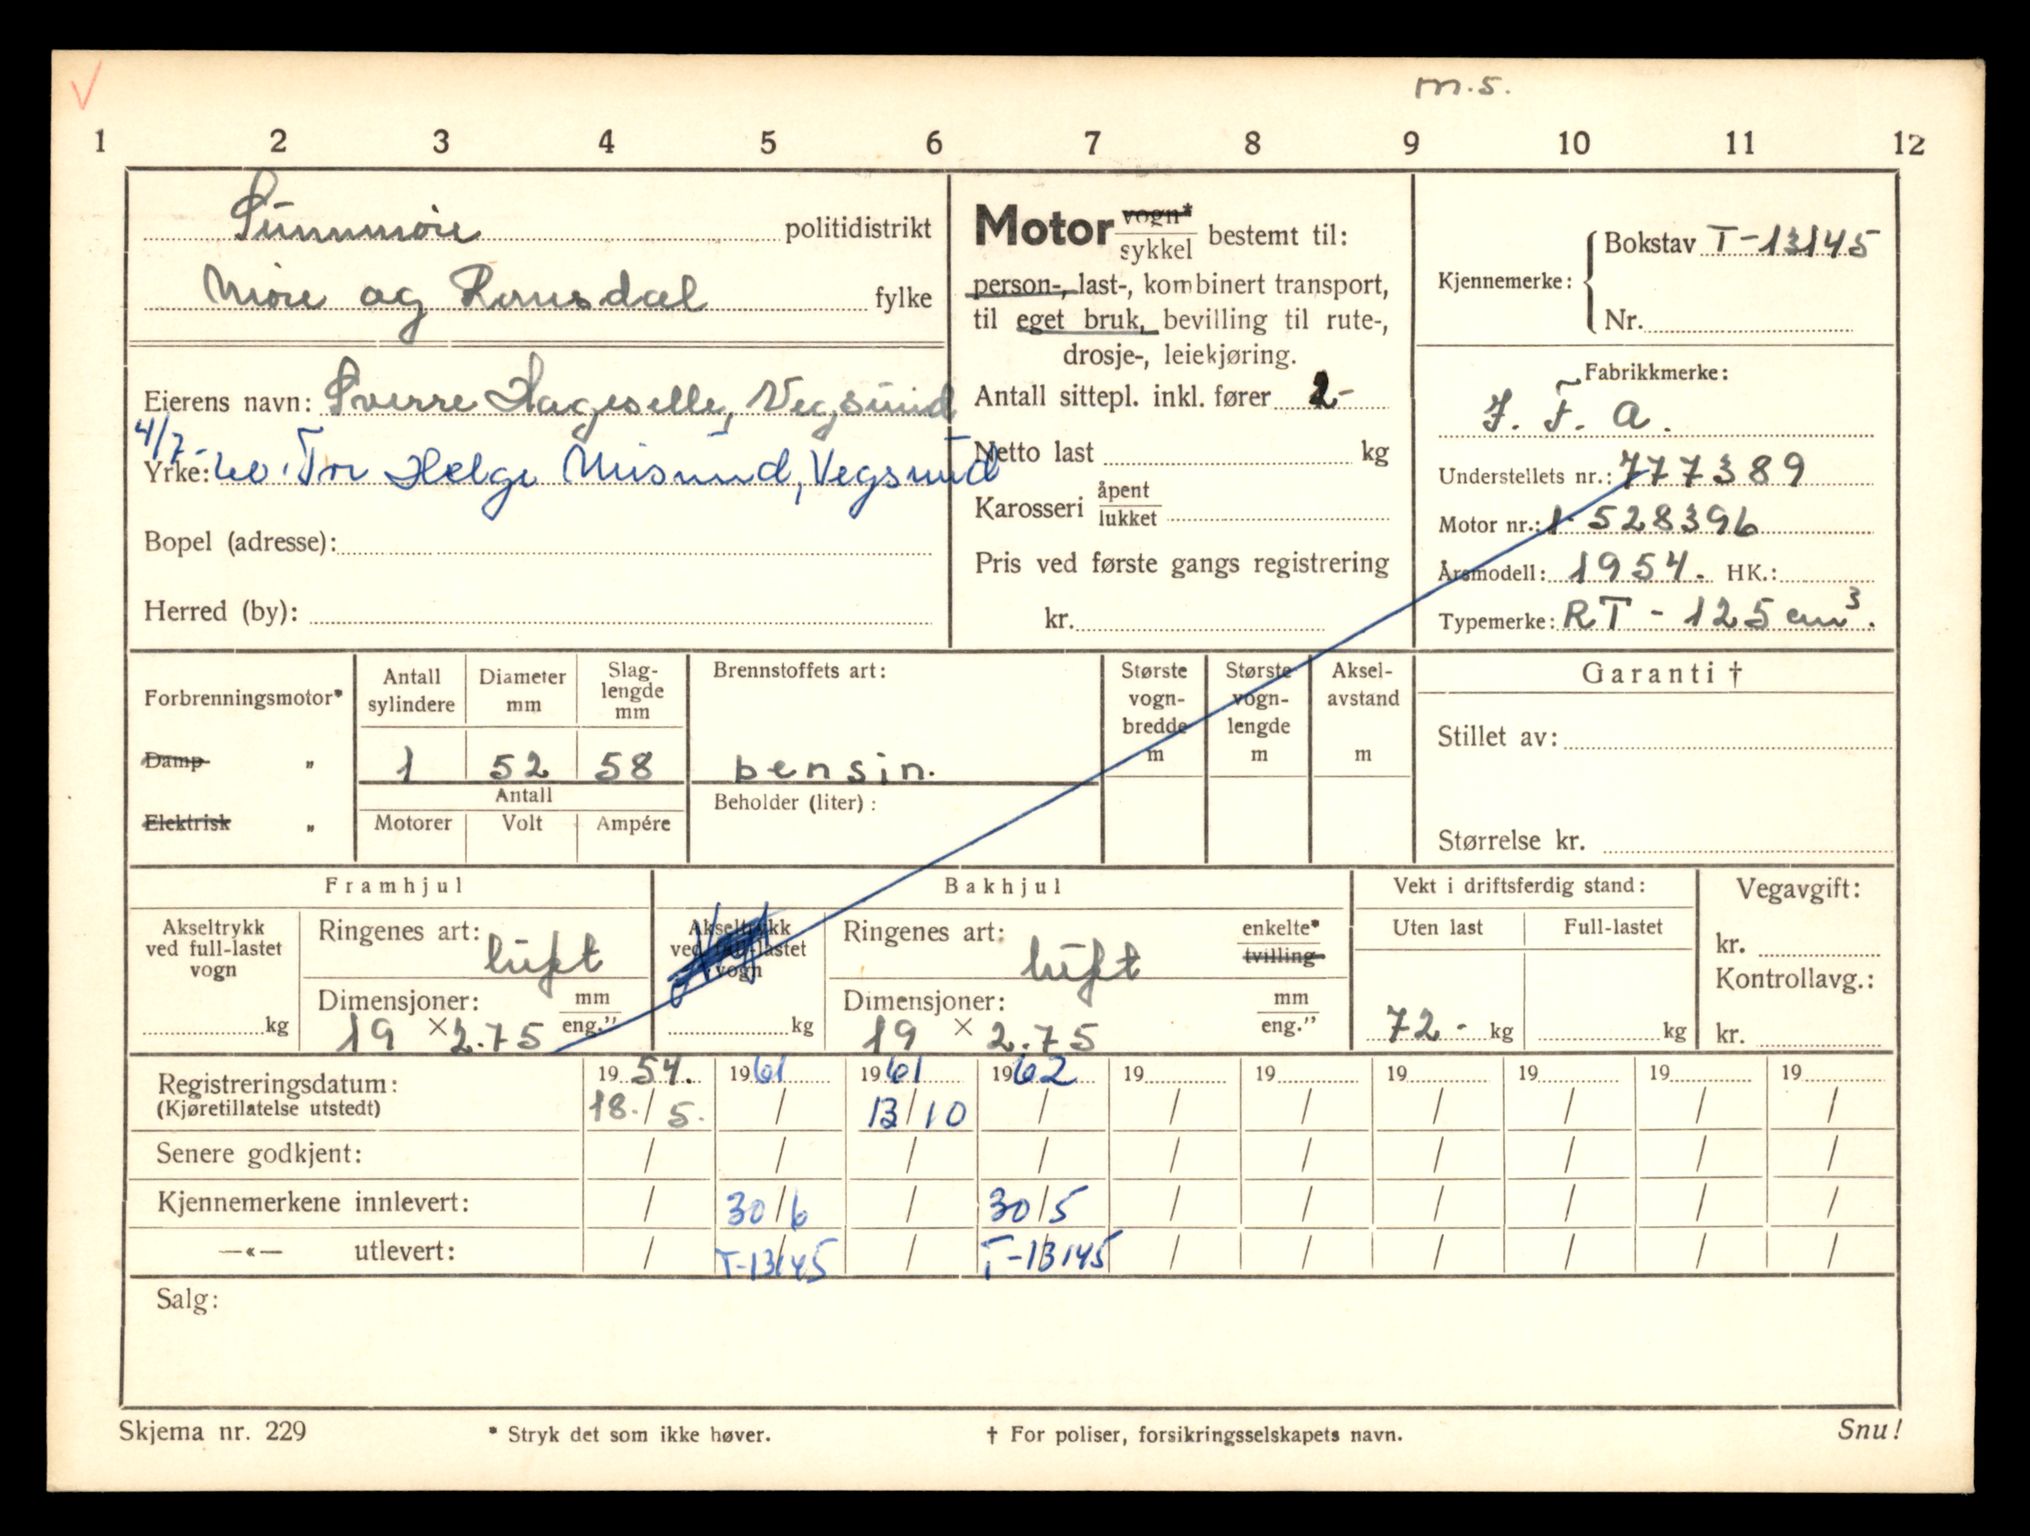 m.s.
1 2 3 4 5 6 7 8 9 10 11 12
Sunnmøre politidistrikt
Møre og Romsdal fylke
Eierens navn: Sverre Hageselle, Vegsund
4/7-
Yrke: 60. Tn Helge Misund, Vegsund
Bopel (adresse):
Herred (by):
Motor vogn* / sykkel bestemt til:
person-, last-, kombinert transport,
til eget bruk, bevilling til rute-,
drosje-, leiekjøring.
Antall sittepl. inkl. fører 2-
Netto last kg
Karosseri åpent / lukket
Pris ved første gangs registrering
kr.
Kjennemerke: Bokstav T-13145
Nr.
Fabrikkmerke:
I. F. A.
Understellets nr.: 777389
Motor nr.: 1-528396
Årsmodell: 1954. HK.:
Typemerke: RT - 125 cm³.
Forbrenningsmotor*
Damp „
Elektrisk „
Antall sylindere
Diameter mm
Slag-lengde mm
1 52 58
Antall
Motorer Volt Ampére
Brennstoffets art:
bensin.
Beholder (liter):
Største vogn-bredde m
Største vogn-lengde m
Aksel-avstand m
Garanti †
Stillet av:
Størrelse kr.
Framhjul
Akseltrykk ved full-lastet vogn
kg
Ringenes art: luft
Dimensjoner: mm / eng."
19 × 2.75
Bakhjul
Akseltrykk ved full-lastet vogn
kg
Ringenes art: luft
enkelte* / tvilling
Dimensjoner: mm / eng."
19 × 2.75
Vekt i driftsferdig stand:
Uten last Full-lastet
72- kg kg
Vegavgift:
kr.
Kontrollavg.:
kr.
Registreringsdatum: 1954. 1961 1961 1962 19 19 19 19 19 19
(Kjøretillatelse utstedt) 18./5. / 13/10 / / / / / / /
Senere godkjent: / / / / / / / / / /
Kjennemerkene innlevert: / 30/6 / 30/5 / / / / / /
—«— utlevert: / T-13145 / T-13145 / / / / / /
Salg:
Skjema nr. 229
* Stryk det som ikke høver.
† For poliser, forsikringsselskapets navn.
Snu!